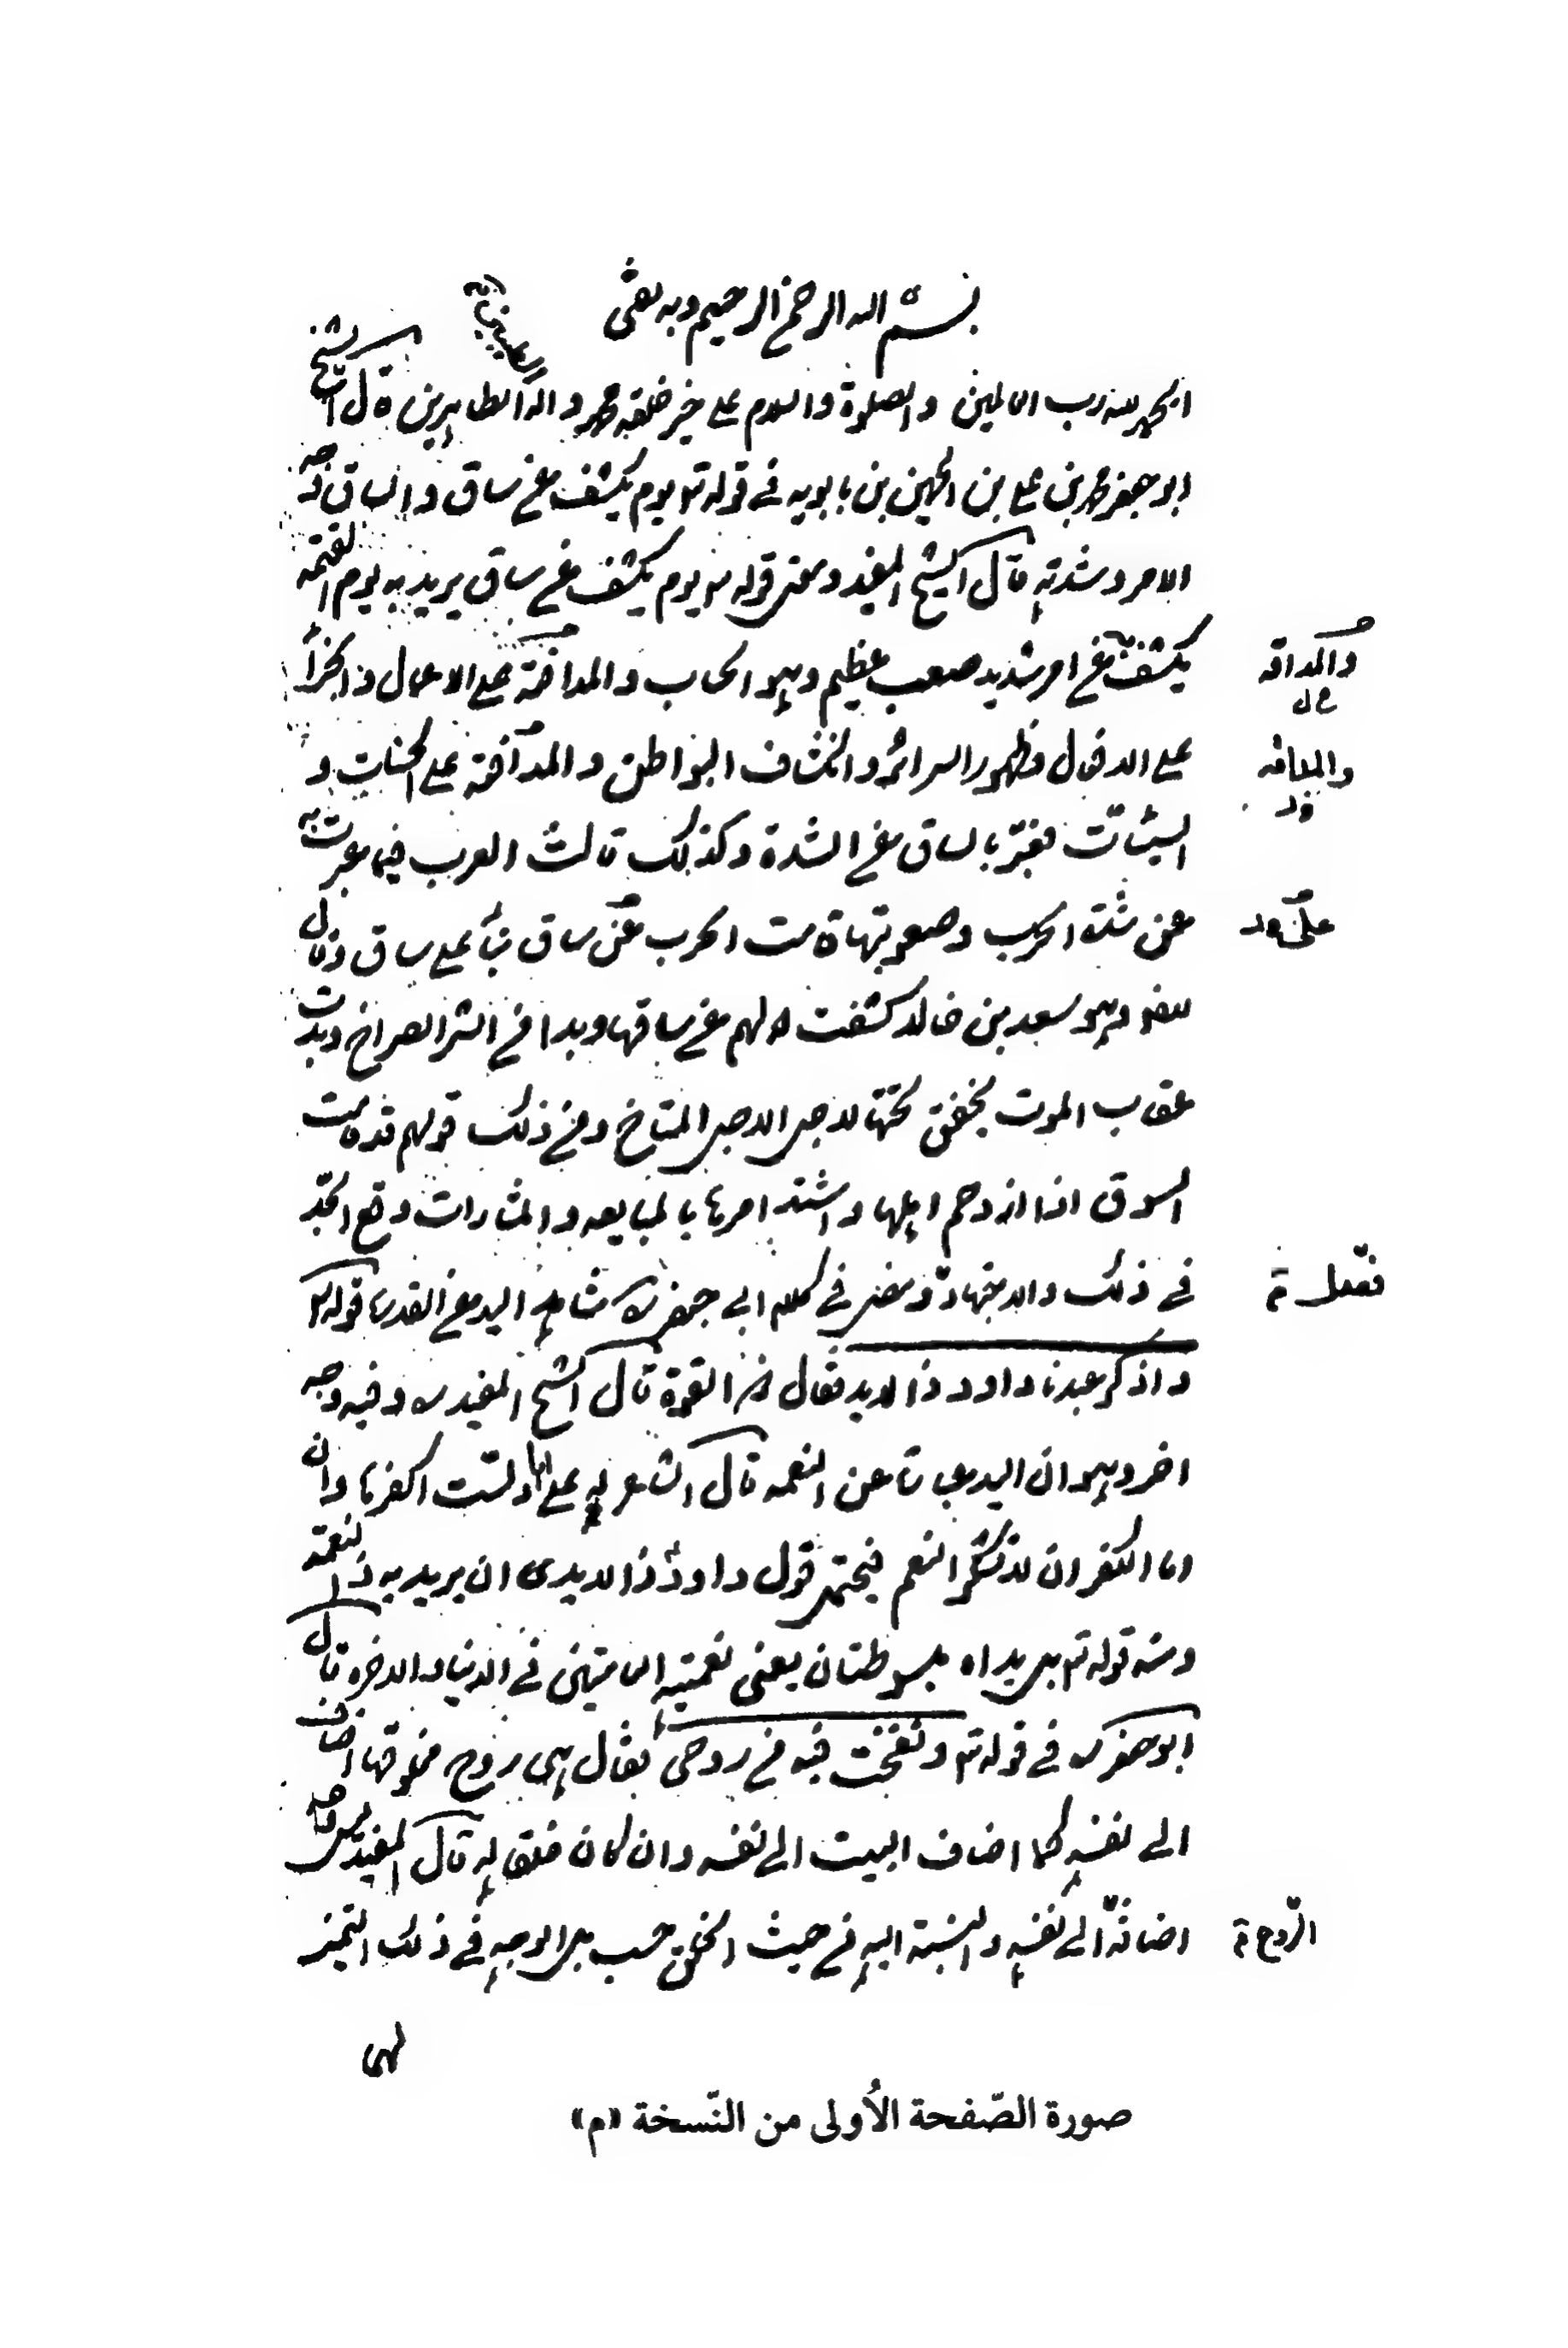 بسم الله الرحمن الرحيم وبه ثقتي
الحمد لله رب العالمين والصلوة والسلام على خير خلقه محمد واله الطاهرين قال الشيخ
ابو جعفر محمد بن علي بن الحسين بن بابويه في قوله تع يوم يكشف عن ساق والساق وجه
الامر وشدته قال الشيخ المفيد ومعنى قوله يوم يكشف عن ساق يريد به يوم القيمة
يكشف فيه عن امر شديد صعب عظيم وهو الحساب والمداقة على الاعمال والجزأ
والمداقه
على الافعال وظهور السرائر وانكشاف البواطن والمداقة على الحسنات و
السيئات فعبّر بالساق عن الشدة وكذلك قالت العرب فيما عبرت به
عن شدة الحرب وصعوبتها قامت الحرب عن ساق بنا على ساق وقال
على
وهو سعد بن خالد كشفت لهم عن ساقها وبدا من الشر الصراح وبدت
عقاب الموت يخفق تحتها الاجل المتاح ومن ذلك قولهم قد قامت
السوق اذا ازدحم اهلها واشتد امرها بالمبايعه والمشارات وقع الجدّ
في ذلك والاجتهاد ومضى في كلام ابي جعفر شاهد اليد عن القدرة قوله تع
فصل
واذكر عبدنا داود ذا الايد فقال ذا القوة قال الشيخ المفيد وفيه وجه
اخر وهو ان اليد عبارة عن النعمه قال الشاعر له علي اياد لست اكفرها وان
ما الكفر ان لا تشكر النعم فيحتمل قول داود ذا الايدى ان يريد به ذا النعمة
ومنه قوله تع بل يداه مبسوطتان يعنى نعمتيه العامتين في الدنيا والاخره قال
ابو جعفر في قوله تع ونفخت فيه من روحى فقال هي روح مخلوقة اضاف
الى نفسه كما اضاف البيت الى نفسه وان كان خلقا له قال المفيد ليس وجه
اضافة الى نفسه والنسبة اليه من حيث الخلق حسب بل الوجه في ذلك التميز
الرّوح
لهى
صورة الصّفحة الأُولى من النّسخة «م»